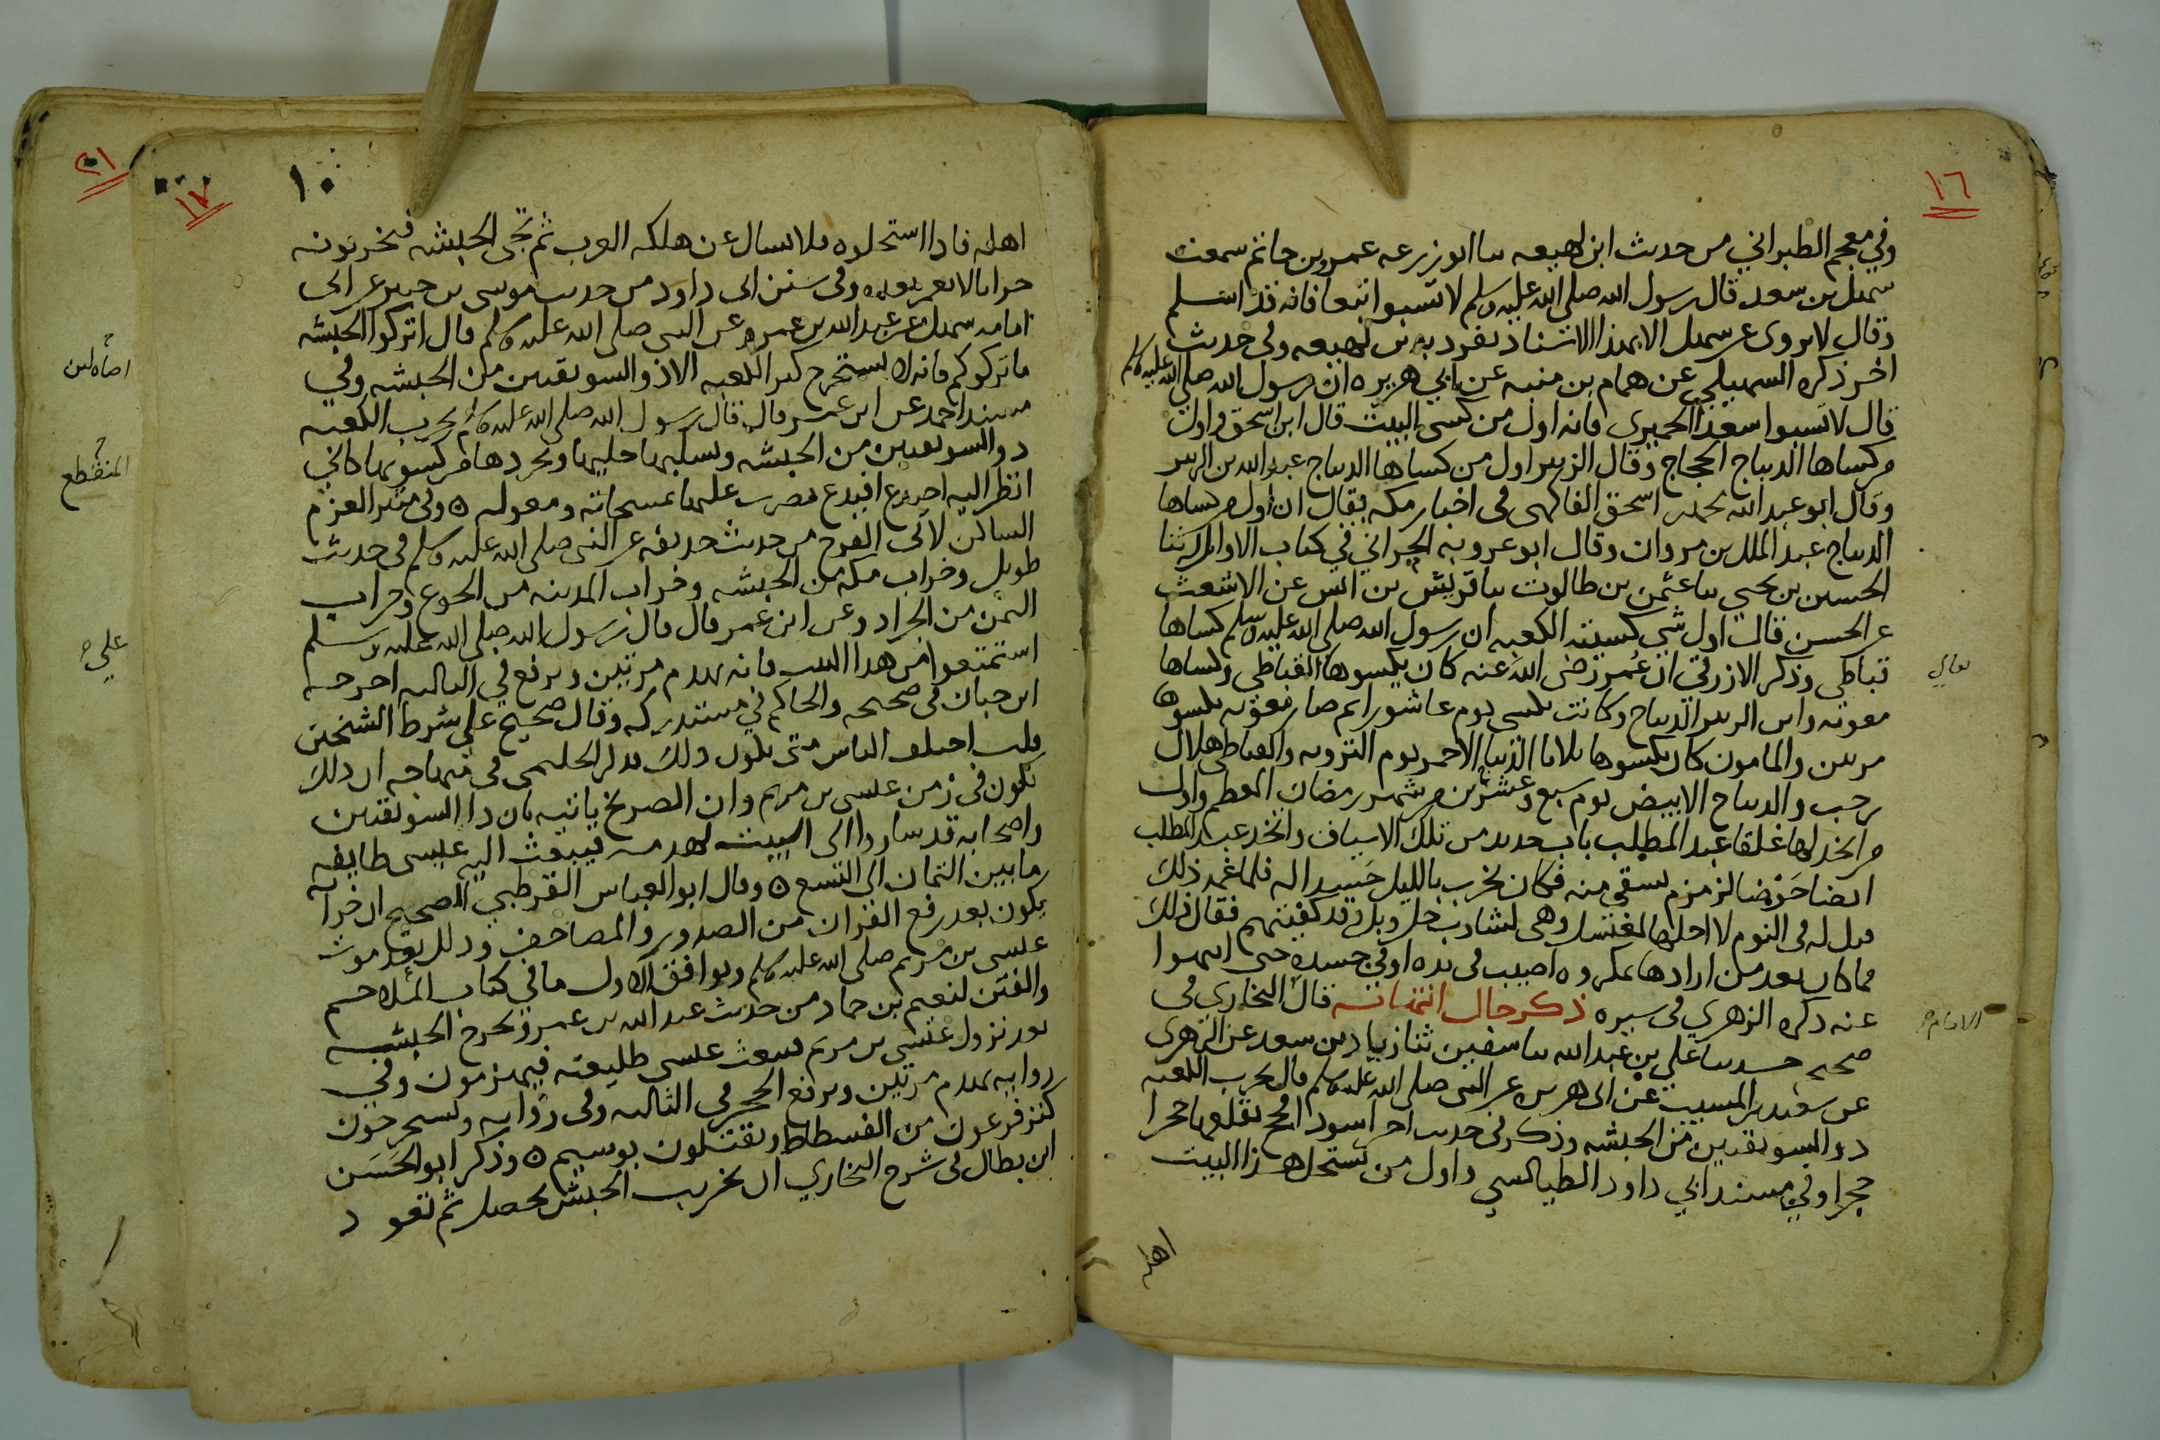 ١٦
وفي معجم الطبراني من حديث ابن لهيعه سا ابو زرعه عمرو بن جابر سمعت
سهل بن سعد قال رسول الله صلى الله عليه وسلم لا تسبوا تبعا فانه قد اسلم
وقال لا يروى عن سهل الا بهذا الاسناد تفرد به بن لهيعه وفي حديث
اخر ذكره السهيلي عن همام بن منبه عن ابي هريره ان رسول الله صلى الله عليه وسلم
قال لا تسبوا اسعد الحميري فانه اول من كسى البيت قال ابن اسحق واول
من كساها الديباج الحجاج وقال الزبير اول من كساها الديباج عبد الله بن الزبير
وقال ابو عبد الله محمد بن اسحق الفاكهي في اخبار مكه يقال ان اول من كساها
الديباج عبد الملك بن مروان وقال ابو عروبه الحراني في كتاب الاوائل ثنا
الحسين بن يحيى سا عثمن بن طالوت سا قريش بن انس عن الاشعث
عن الحسن قال اول شي كسيته الكعبه ان رسول الله صلى الله عليه وسلم كساها
قباطي وذكر الازرقي ان عمر رضى الله عنه كان يكسوها القباطي وكساها
معويه وابن الزبير الديباج وكانت تكسى يوم عاشورا ثم صار معويه يكسوها
مرتين والمامون كان يكسوها ثلاثا الديباج الاحمر يوم الترويه والقباطي هلال
رجب والديباج الابيض يوم سبع وعشرين من شهر رمضان المعظم واول
من اتخذ لها غلقا عبد المطلب باب حديد من تلك الاسياف واتخذ عبد المطلب
ايضا حوضا لزمزم يسقى منه فكان يخرب بالليل حسدا له فلما غمه ذلك
قيل له في النوم لا احلها لمغتسل وهي لشارب حل وبل وقد كفيتهم فقال ذلك
فما كان بعد من ارادها بمكروه اصيب في بدنه او في جسده حتى انتهوا
عنه ذكره الزهري في سيره ذكر حال انتهائه قال البخاري في
صحيحه حدثنا علي بن عبد الله سا سفين ثنا زياد بن سعد عن الزهري
عن سعيد بن المسيب عن ابي هريره عن النبي صلى الله عليه وسلم قال يخرب الكعبه
ذو السويقتين من الحبشه وذكر في حديث اخر اسود افحج يقلعها حجرا
حجرا وفي مسند ابي داود الطيالسي واول من يستحل هذا البيت
اهله
تعالى
الامام
١٧
١٠
اهله فاذا استحلوه فلا تسال عن هلكه العرب ثم تجي الحبشه فيخربونه
خرابا لا يعمر بعده وفي سنن ابي داود من حديث موسى بن جبير عن ابي
امامه بن سهل عن عبد الله بن عمرو عن النبي صلى الله عليه وسلم قال اتركوا الحبشه
ما تركوكم فانه لا يستخرج كنز الكعبه الا ذو السويقتين من الحبشه وفي
مسند احمد عن ابن عمر قال قال رسول الله صلى الله عليه وسلم يخرب الكعبه
ذو السويقتين من الحبشه ويسلبها حليها ويجردها من كسوتها كاني
انظر اليه اصيلع افيدع يضرب عليها بمسحاته ومعوله وفي مثير العزم
الساكن لابي الفرج من حديث حذيفه عن النبي صلى الله عليه وسلم في حديث
طويل وخراب مكه من الحبشه وخراب المدينه من الجوع وخراب
اليمن من الجراد وعن ابن عمر قال قال رسول الله صلى الله عليه وسلم
استمتعوا من هذا البيت فانه يهدم مرتين ويرفع في الثالثه اخرجه
ابن حبان في صحيحه والحاكم في مستدركه وقال صحيح على شرط الشيخين
قلت اختلف الناس متى يكون ذلك فذكر الحليمي في منهاجه ان ذلك
يكون في زمن عيسى بن مريم وان الصريخ ياتيه بان ذا السويقتين
واصحابه قد ساروا الى البيت لهدمه فيبعث اليه عيسى طايفه
ما بين الثمان الى التسع وقال ابو العباس القرطبي الصحيح ان خرابه
يكون بعد رفع القران من الصدور والمصاحف وذلك بعد موت
عيسى بن مريم صلى الله عليه وسلم ويوافق الاول ما في كتاب الملاحم
والفتن لنعيم بن حماد من حديث عبد الله بن عمرو تخرج الحبشه
بعد نزول عيسى بن مريم يبعث عيسى طليعته فيهزمون وفي
روايه يهدم مرتين ويرفع الحجر في الثالثه وفي روايه ويستخرجون
كنز فرعون من الفسطاط ويقتتلون بوسيم وذكر ابو الحسن
ابن بطال في شرح البخاري ان تخريب الحبش يحصل ثم تعود
٢١
المنقطع
علي